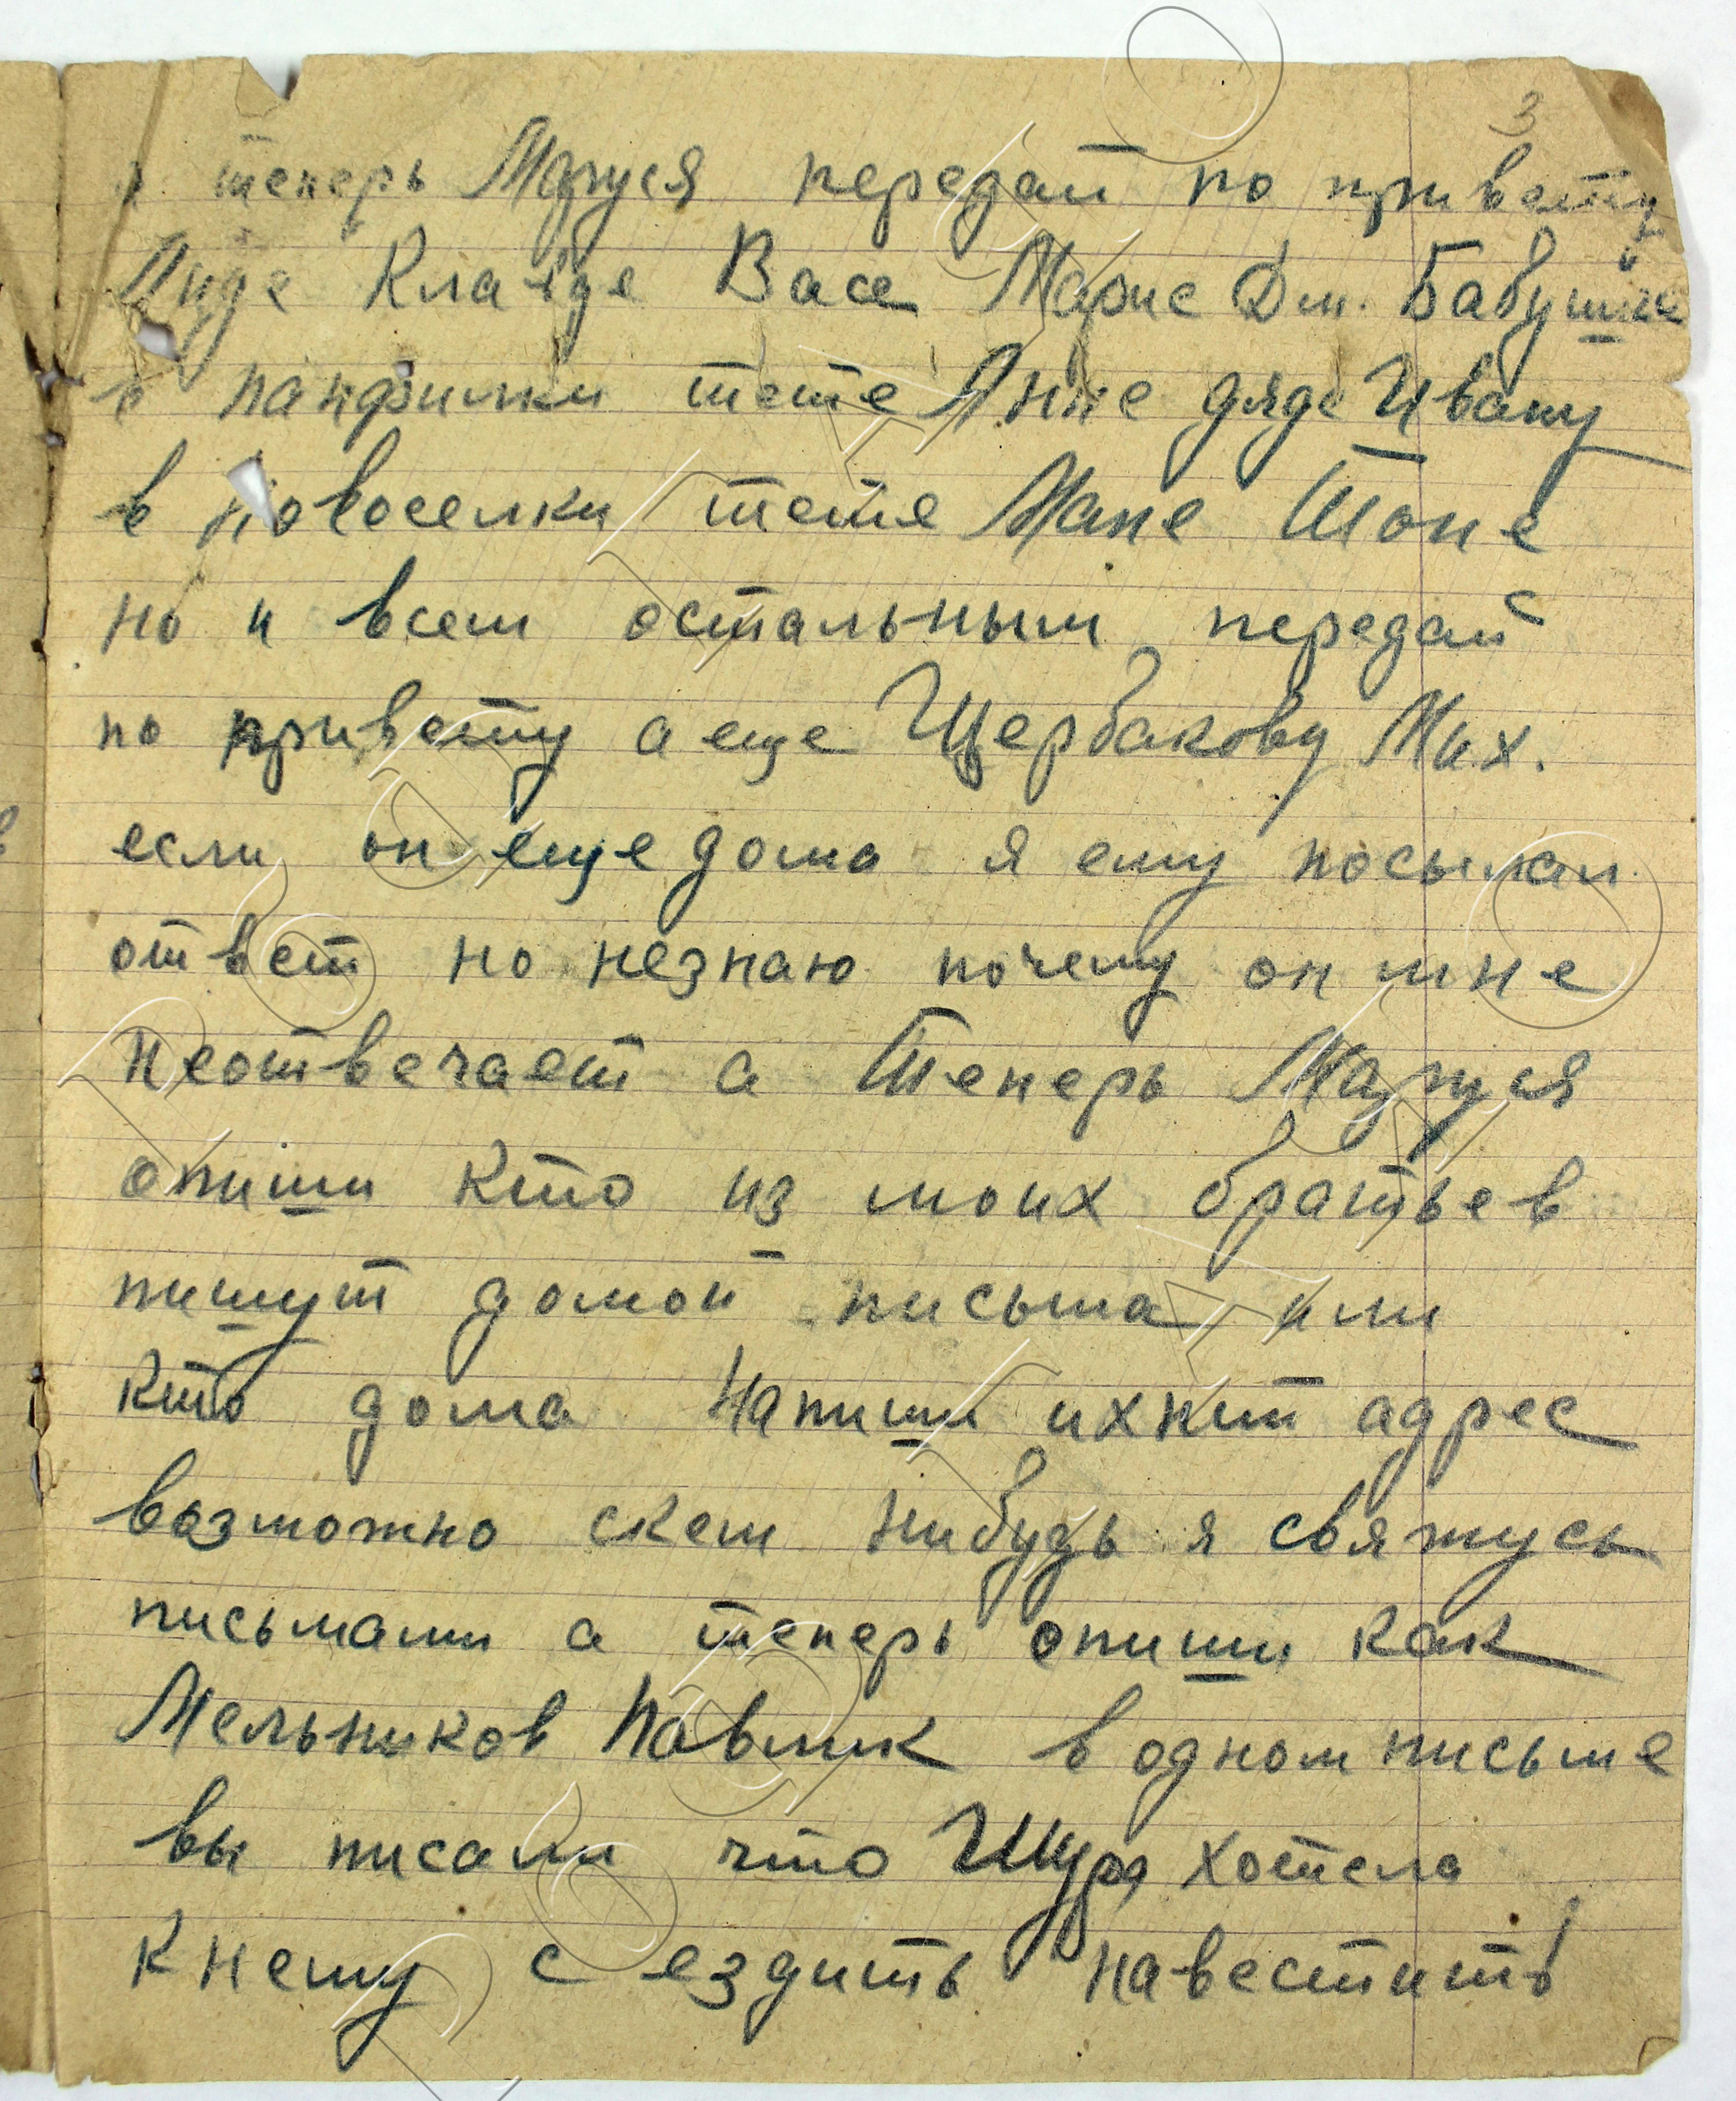 3
теперь Маруся передай по привету
Лиде Клавде Васе Марие Дм. Бабушке
в панфилки тете Анне дяде Ивану
в Новоселки тете Мане Тоне
но и всем остальным передай
по привету а еще Щербакову Мих.
если он еще дома я ему посылал
ответ но незнаю почему он мне
неотвечает а Теперь Маруся
опиши кто из моих братьев
пишут домой письма или
кто дома Напиши ихний адрес
возможно скем нибудь я свяжусь
письмами а теперь опиши как
Мельников Павлик в одном письме
вы писали что Шура хотела
к нему с ездить навестить